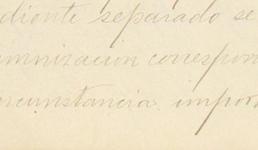 diente separado se
mnizacion correspon
rcunstancia impor